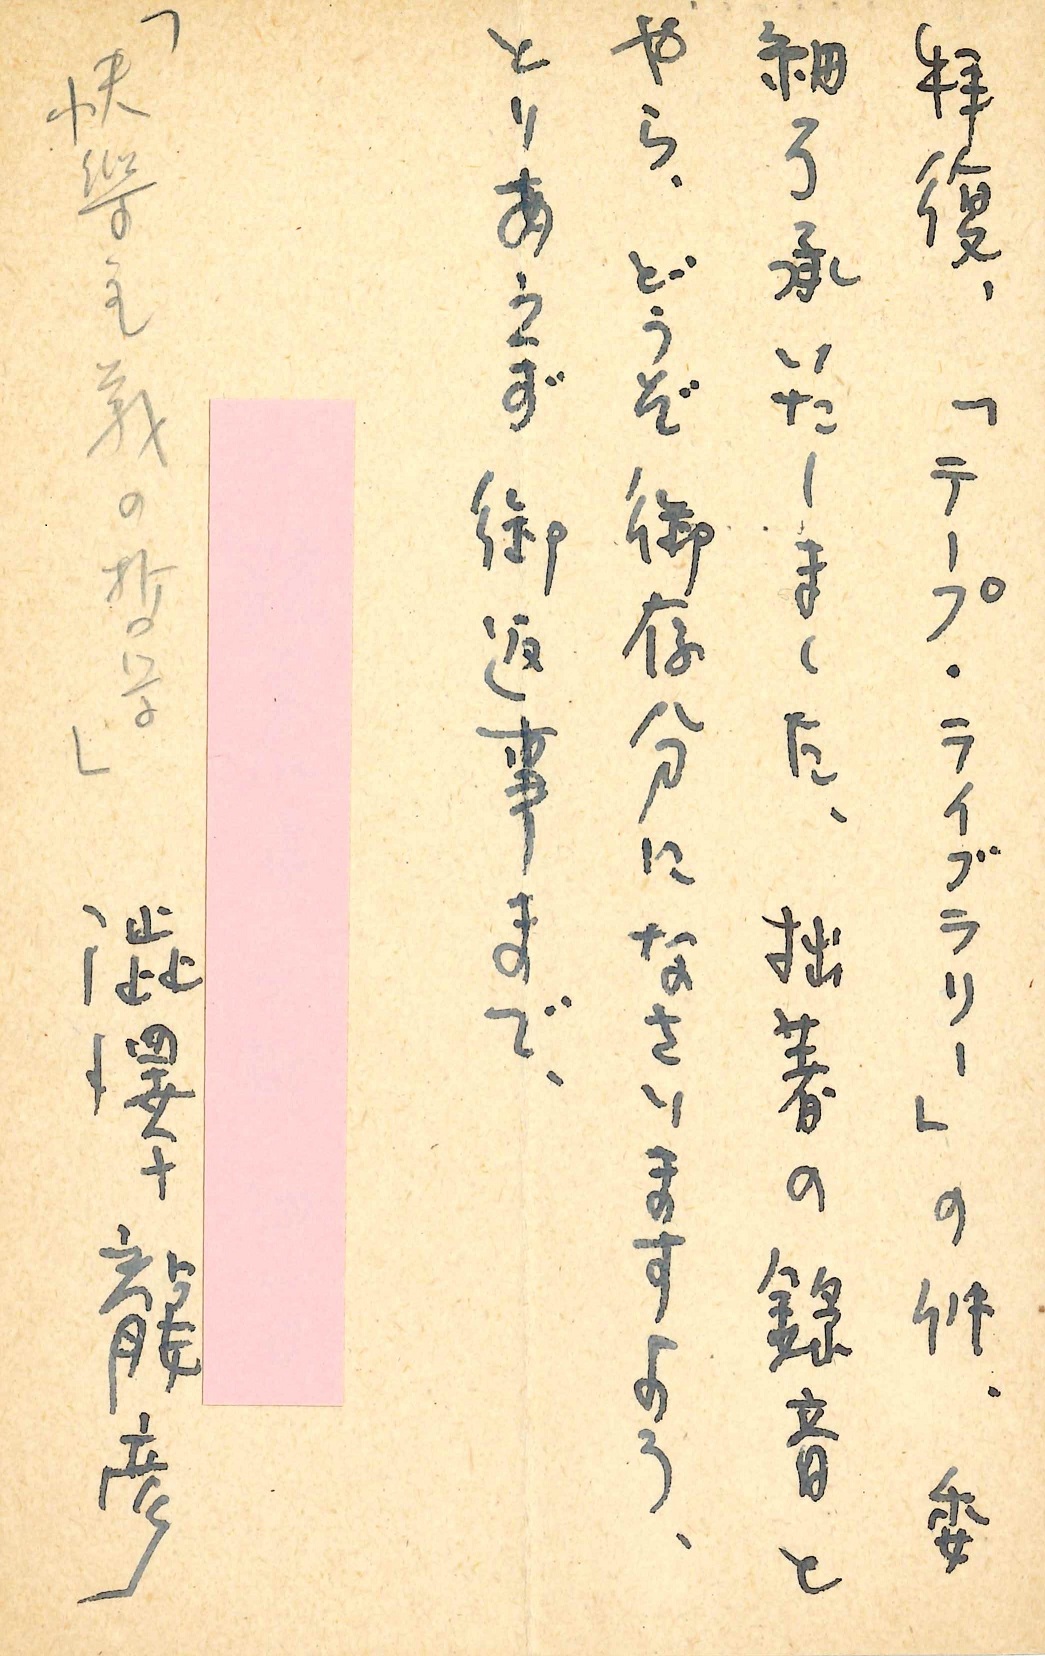 拝復、「テープ・ライブラリー」の件、委
細了承いたしました、拙著の録音と
やら、どうぞ御存分になさいますよう、
とりあえず御返事まで、
澁澤龍彦
「快楽主義の哲学」